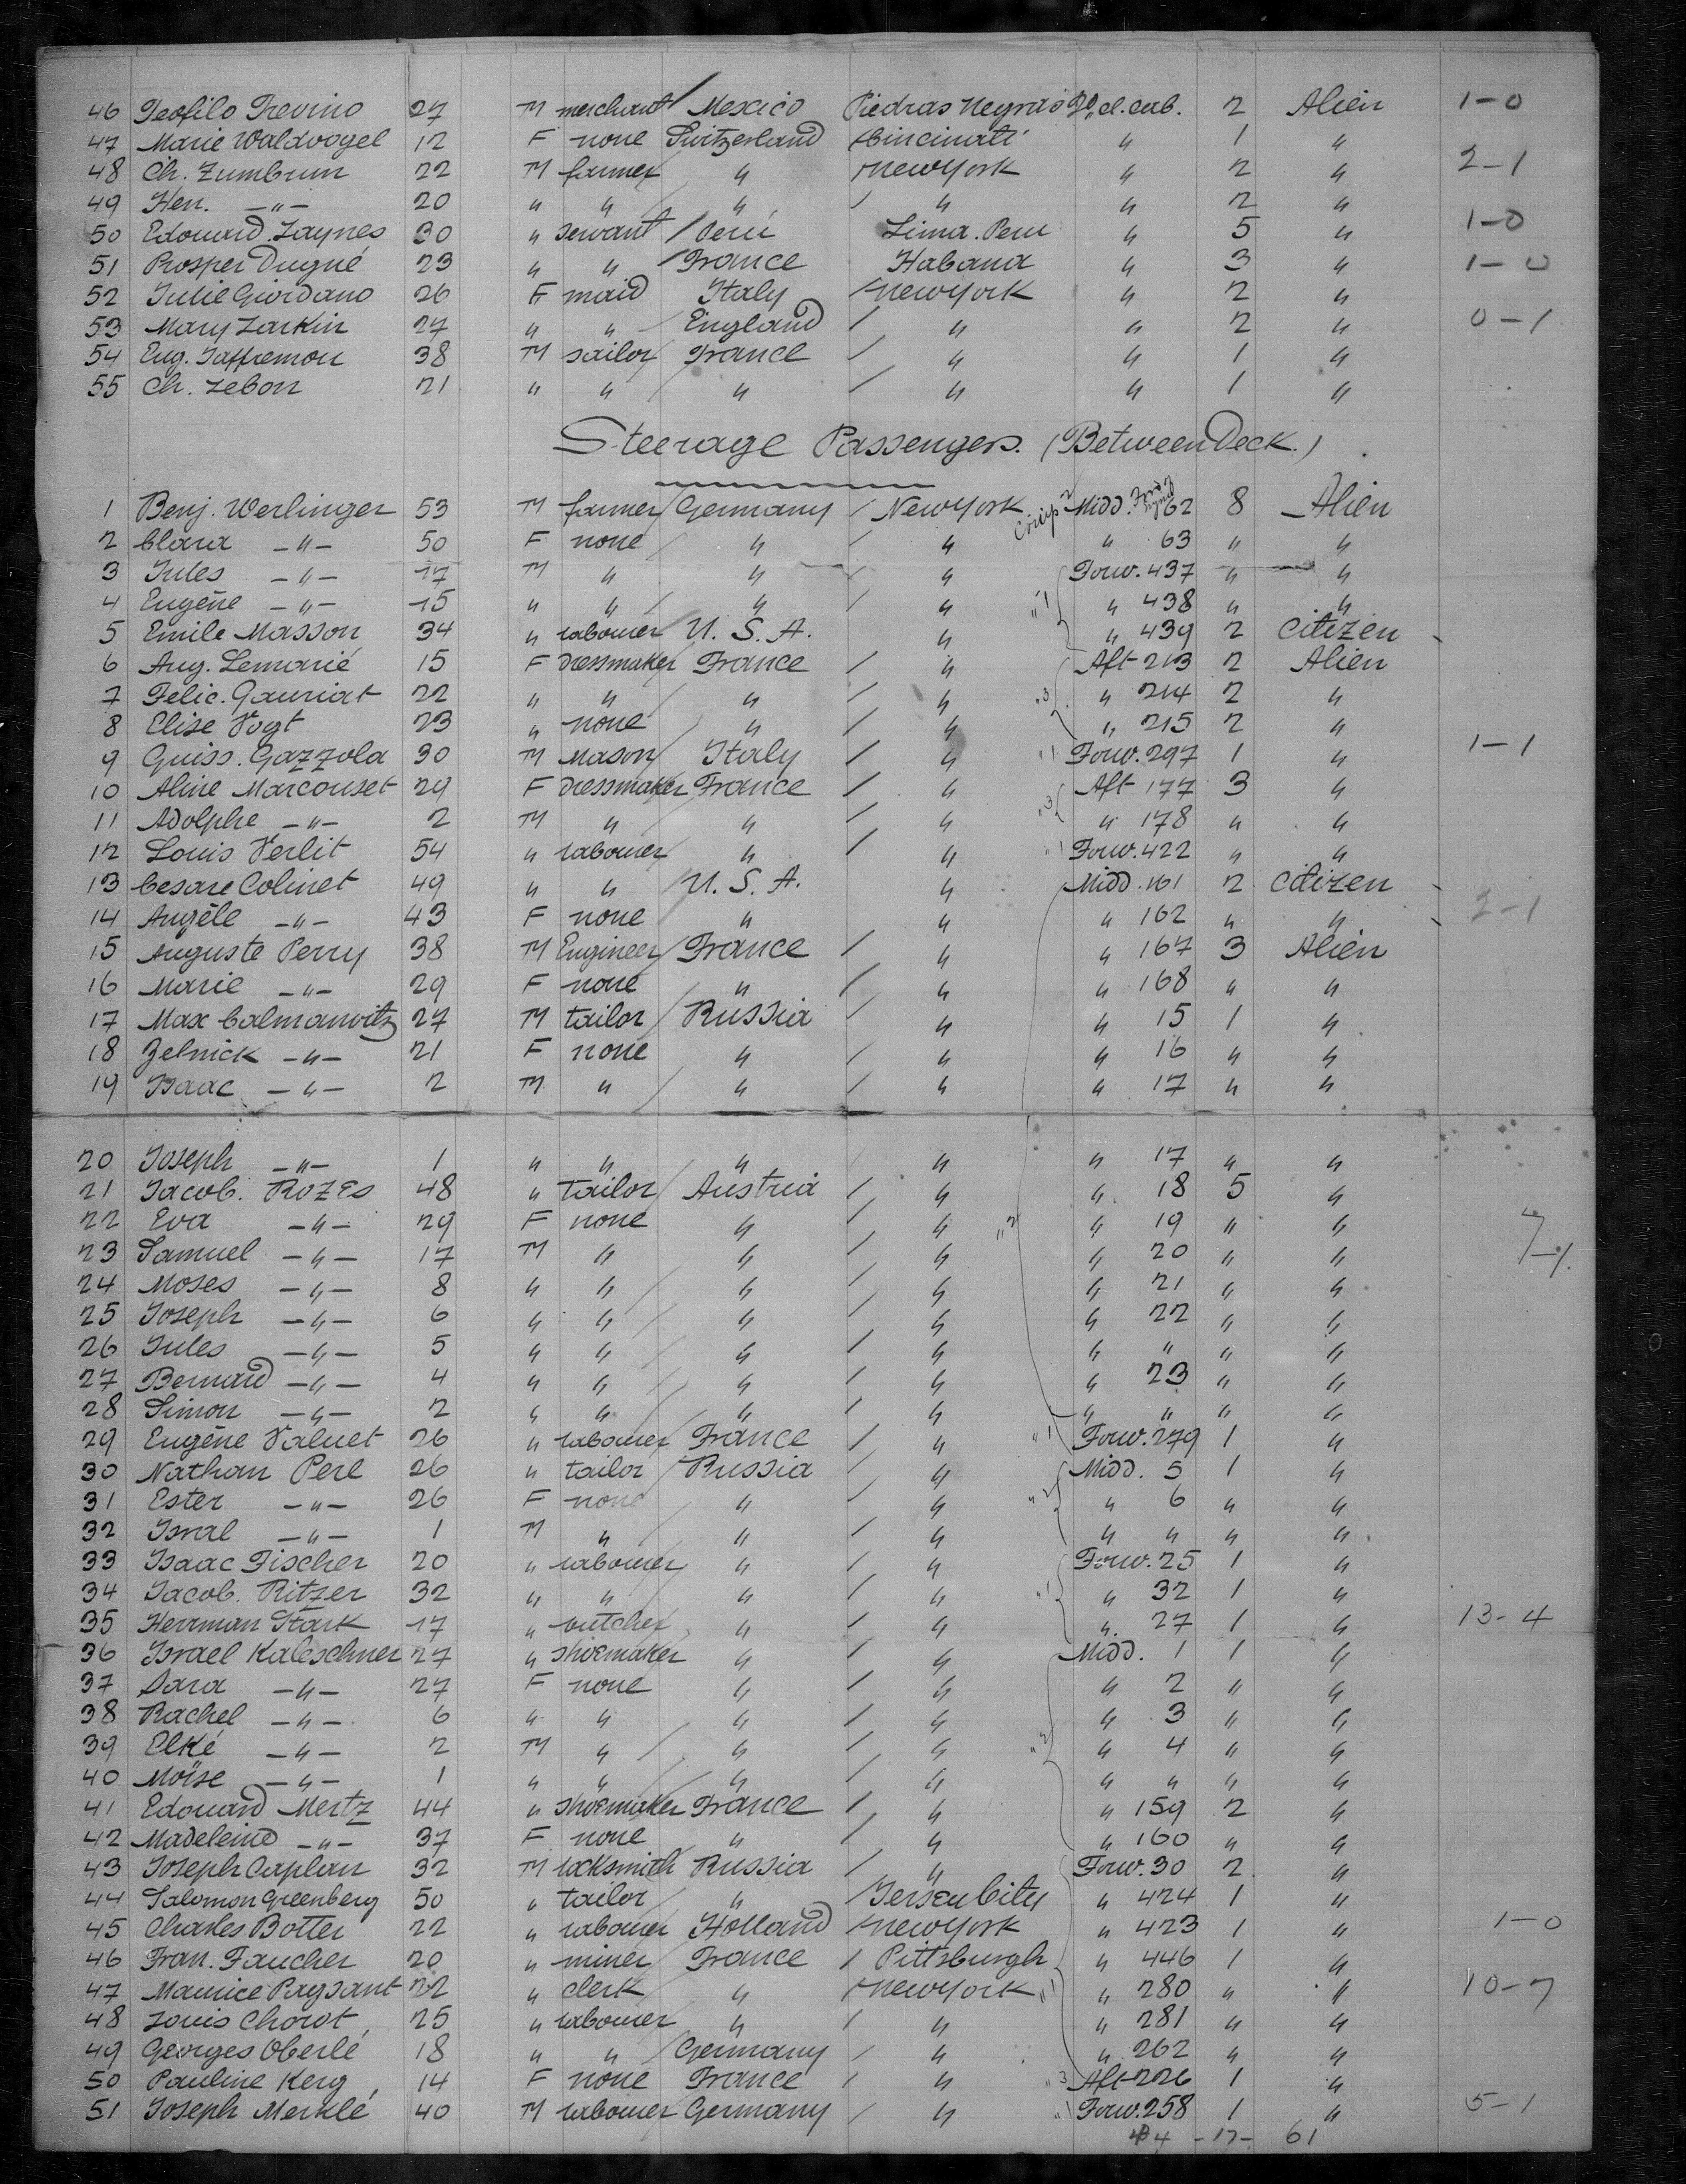 46 Teofilo Trevino 27 M merchant Mexico Piedras Negras 2d cl. cab. 2 Alien 1-0
47 Marie Waldvogel 12 F none Switzerland Cincinati " 1 "
48 Ch. Zumbrun 22 M farmer " New York " 2 " 2-1
49 Hen. -"- 20 " " " " " 2 "
50 Edouard Jaynes 30 " servant Peru Lima. Peru " 5 " 1-0
51 Prosper Dugné 23 " " France Habana " 3 " 1-0
52 Julie Giordano 26 F maid Italy New York " 2 "
53 Mary Larkin 27 " " England " " 2 " 0-1
54 Eug. Jaffremou 38 M sailor France " " 1 "
55 Ch. Lebon 21 " " " " " 1 "
Steerage Passengers. (Between Deck.)
1 Benj. Werlinger 53 M farmer Germany New York Midd. 62 8 Alien
2 Clara -"- 50 F none " " " 63 " "
3 Jules -"- 17 M " " " Forw. 437 " "
4 Eugène -"- 15 " " " " "1 " 438 " "
5 Emile Masson 34 " labourer U. S. A. " " 439 2 Citizen
6 Aug. Lemarié 15 F dressmaker France " Aft 213 2 Alien
7 Felic. Gauriat 22 " " " " "3 " 214 2 "
8 Elise Vogt 23 " none " " " 215 2 "
9 Guiss. Gazzola 30 M Mason Italy " "1 Forw. 297 1 " 1-1
10 Aline Marcouset 29 F dressmaker France " Aft 177 3 "
11 Adolphe -"- 2 M " " " "3 " 178 " "
12 Louis Verlit 54 " labourer " " "1 Forw. 422 " "
13 Cesare Colinet 49 " " U. S. A. " Midd. 161 2 Citizen
14 Angèle -"- 43 F none " " " 162 " " 2-1
15 Auguste Perry 38 M Engineer France " " 167 3 Alien
16 Marie -"- 29 F none " " " 168 " "
17 Max Calmanovitz 27 M tailor Russia " " 15 1 "
18 Zelnick -"- 21 F none " " " 16 " "
19 Isaac -"- 2 M " " " " 17 " "
20 Joseph -"- 1 " " " " " 17 " "
21 Jacob. Rozes 48 " Tailor Austria " " 18 5 "
22 Eva -"- 29 F none " " "2 " 19 " "
23 Samuel -"- 17 M " " " " 20 " " 7-1.
24 Moses -"- 8 " " " " " 21 " "
25 Joseph -"- 6 " " " " " 22 " "
26 Jules -"- 5 " " " " " " " "
27 Bernard -"- 4 " " " " " 23 " "
28 Simon -"- 2 " " " " " " " "
29 Eugène Valuet 26 " labourer France " "1 Forw. 279 1 "
30 Nathan Perl 26 " tailor Russia " Midd. 5 1 "
31 Ester -"- 26 F none " " "2 " 6 " "
32 Isral -"- 1 M " " " " " " "
33 Isaac Fischer 20 " labourer " " Forw. 25 1 "
34 Jacob. Ritzer 32 " " " " "1 " 32 1 "
35 Herrman Stark 17 " butcher " " " 27 1 " 13-4
36 Israel Kaleschner 27 " shoemaker " " Midd. 1 1 "
37 Sara -"- 27 F none " " " 2 " "
38 Rachel -"- 6 " " " " " 3 " "
39 Elké -"- 2 M " " " "2 " 4 " "
40 Moïse -"- 1 " " " " " " " "
41 Edouard Mertz 44 " shoemaker France " " 159 2 "
42 Madeleine -"- 37 F none " " " 160 " "
43 Joseph Caplan 32 M locksmith Russia " Forw. 30 2 "
44 Salomon Greenberg 50 " tailor " Jersey City " 424 1 "
45 Charles Botter 22 " labourer Holland New York " 423 1 " 1-0
46 Fran. Faucher 20 " miner France Pittsburgh " 446 1 "
47 Maurice Paysant 22 " clerk " New York "1 " 280 " " 10-7
48 Louis Chorot 25 " labourer " " " 281 " "
49 Georges Oberlé 18 " " Germany " " 262 " "
50 Pauline Kerg 14 F none France " "3 Aft 226 1 "
51 Joseph Merklé 40 M labourer Germany " "1 Forw. 258 1 " 5-1
44 -17- 61